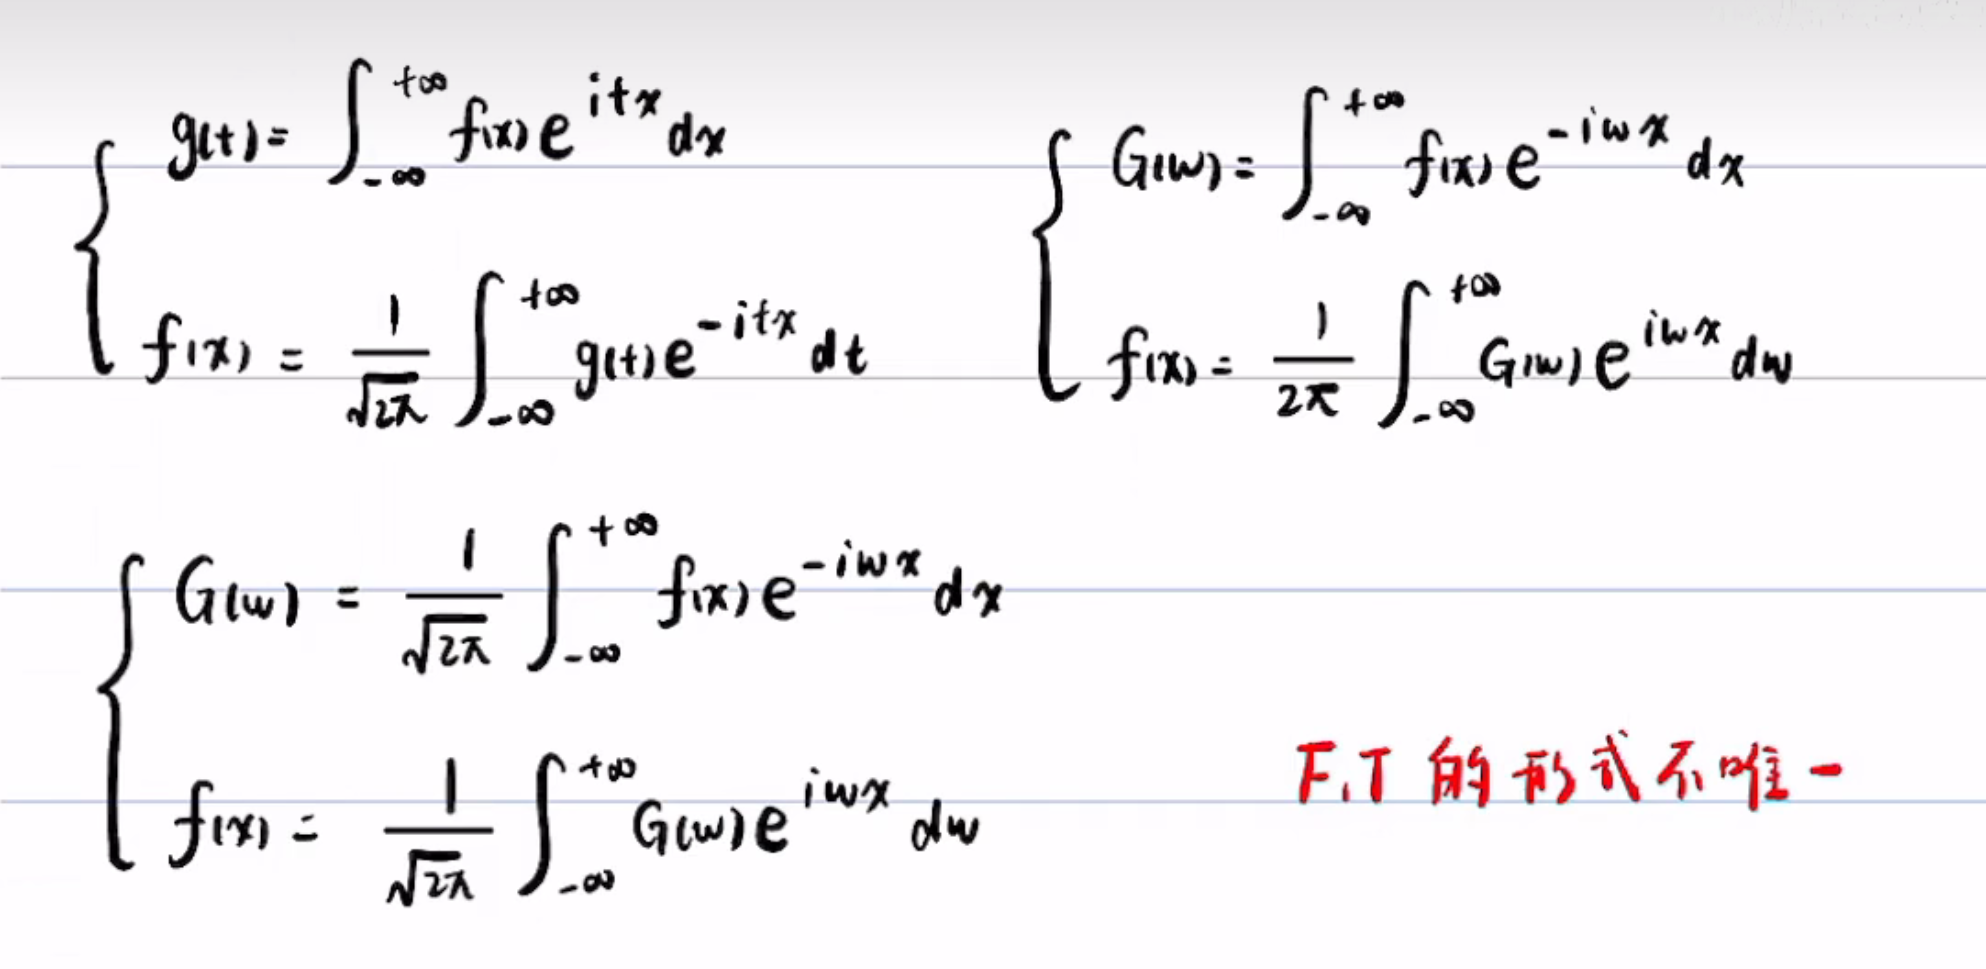 g(t) = ∫_{-∞}^{+∞} f(x) e^{itx} dx
f(x) = \frac{1}{\sqrt{2π}} ∫_{-∞}^{+∞} g(t) e^{-itx} dt
G(w) = ∫_{-∞}^{+∞} f(x) e^{-iwx} dx
f(x) = \frac{1}{2π} ∫_{-∞}^{+∞} G(w) e^{iwx} dw
G(w) = \frac{1}{\sqrt{2π}} ∫_{-∞}^{+∞} f(x) e^{-iwx} dx
f(x) = \frac{1}{\sqrt{2π}} ∫_{-∞}^{+∞} G(w) e^{iwx} dw
F.T 的形式不唯一